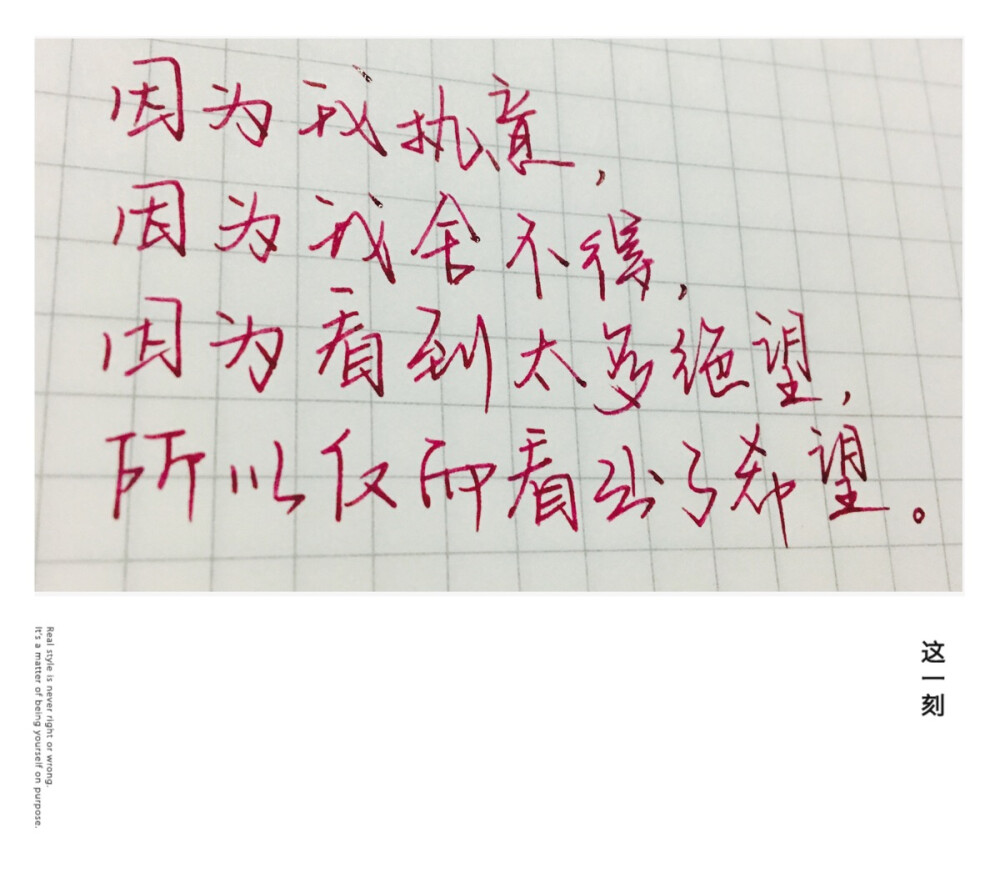 因为我执意，
因为我舍不得，
因为看到太多绝望，
所以仅而看出了希望。
这一刻
Real style is never right or wrong.
It's a matter of being yourself on purpose.